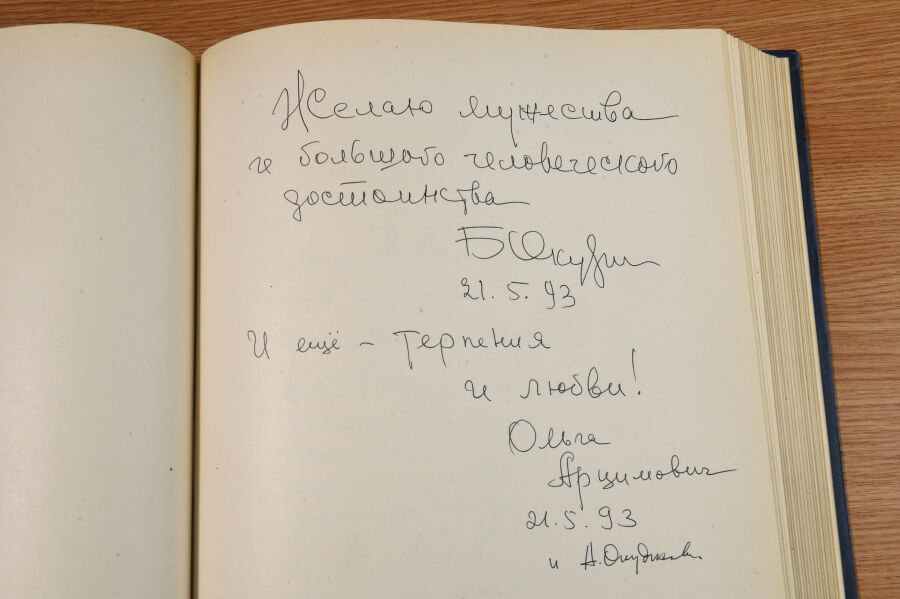 Желаю мужества
и большого человеческого
достоинства
Б Окуд
21.5.93
И ещё - терпения
и любви!
Ольга
Арцимович
21.5.93
и А. Окуджава